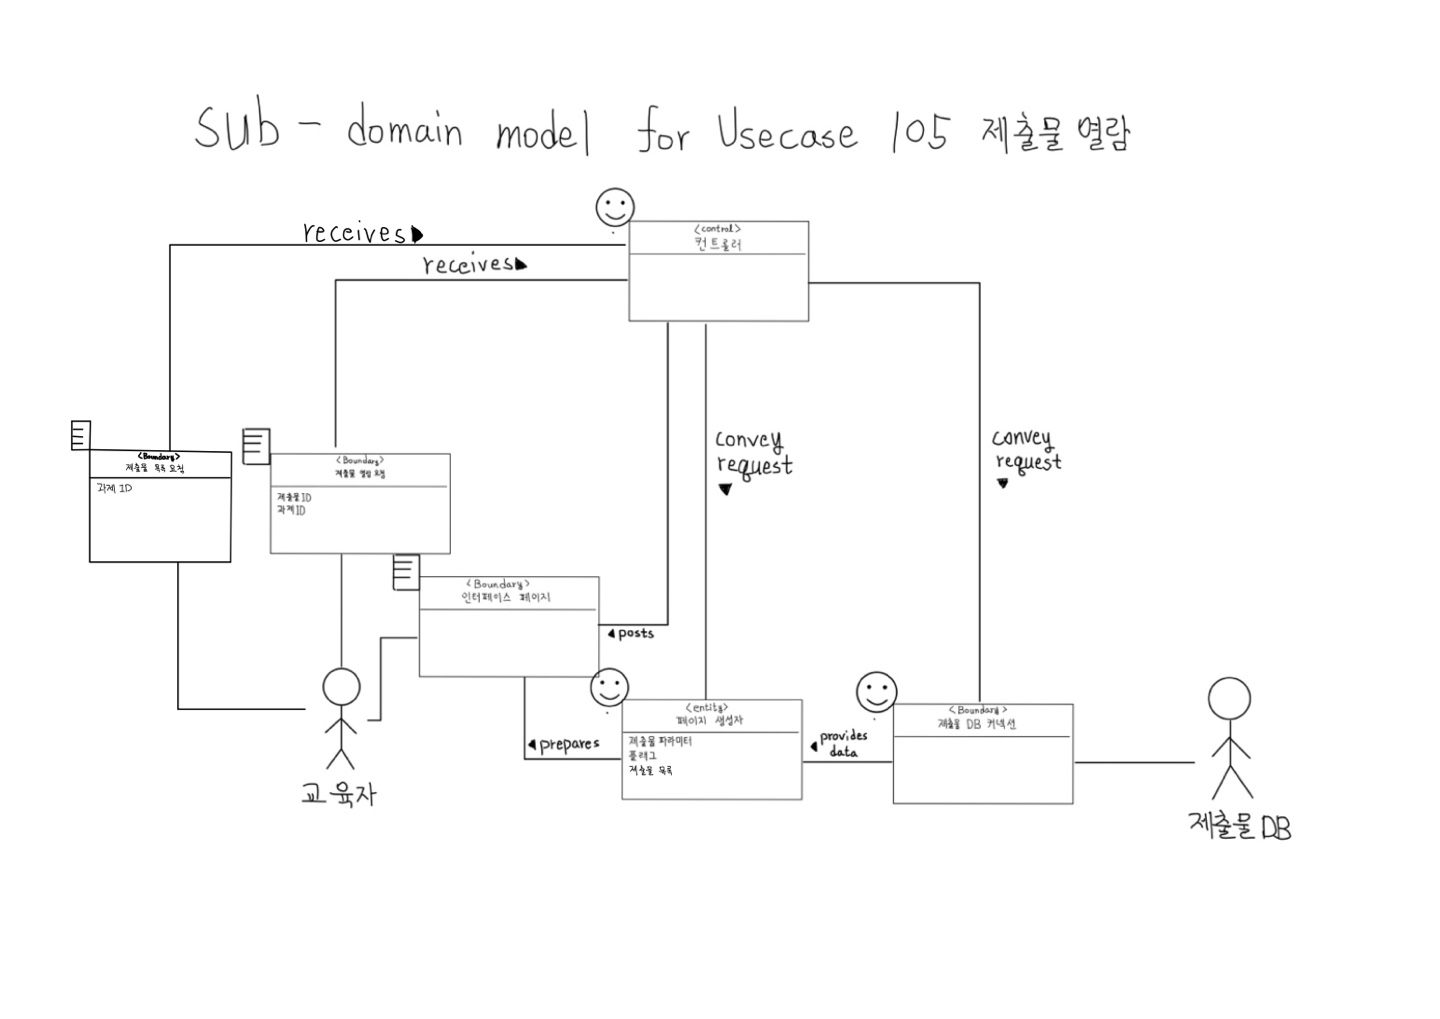 sub - domain model for Usecase 105 제출물 열람
receives▶
receives▶
<control>
컨트롤러
convey
request
▼
convey
request
▼
<Boundary>
제출물 목록 요청
과제 ID
<Boundary>
제출물 열람 요청
제출물 ID
과제 ID
<Boundary>
인터페이스 페이지
◀ posts
<entity>
페이지 생성자
제출물 파라미터
플래그
제출물 목록
◀ prepares
<Boundary>
제출물 DB 커넥션
◀ provides
data
교육자
제출물 DB